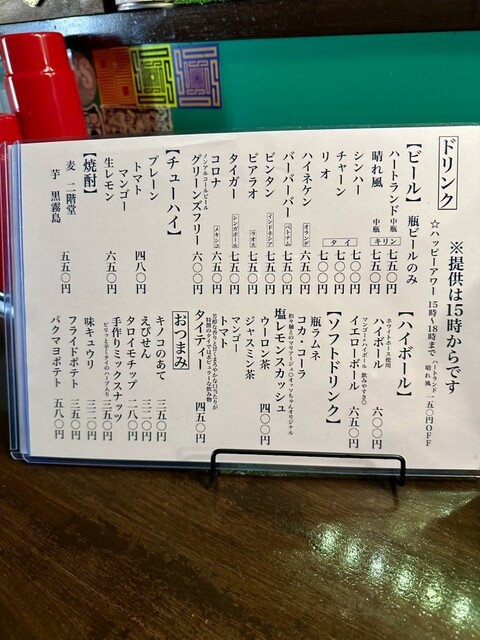 ドリンク
※提供は15時からです
☆ハッピーアワー 15時〜18時まで ハートランド 晴れ風 一五〇円OFF
【ビール】瓶ビールのみ
ハートランド 中瓶 キリン 七五〇円
晴れ風 中瓶 七五〇円
シンハー 七〇〇円
チャーン タイ 七〇〇円
リオ 七〇〇円
ハイネケン オランダ 六五〇円
バーバーバー ベトナム 七五〇円
ビンタン インドネシア 七五〇円
ビアラオ ラオス 七五〇円
タイガー シンガポール 七五〇円
コロナ メキシコ 七五〇円
ノンアルコールビール
グリーンズフリー 六〇〇円
【チューハイ】
プレーン
トマト 四八〇円
マンゴー
生レモン 六五〇円
【焼酎】
麦 二階堂
芋 黒霧島 五五〇円
【ハイボール】
ホワイトホース使用
ハイボール 六〇〇円
マンゴーハイボール 飲みやすさ◎
イエローボール 六五〇円
【ソフトドリンク】
瓶ラムネ
コカ・コーラ
担々麺とのマリアージュ◎オッソちゃんオリジナル
塩レモンスカッシュ
ウーロン茶 四〇〇円
ジャスミン茶
マンゴー
トマト
タイティー 四五〇円
おつまみ
キノコのあて 三五〇円
えびせん 三二〇円
タロイモチップ 二八〇円
手作りミックスナッツ
ピリッと辛くタイのハーブ入り 三五〇円
味キュウリ 三三〇円
フライドポテト 三五〇円
パクマヨポテト 五八〇円